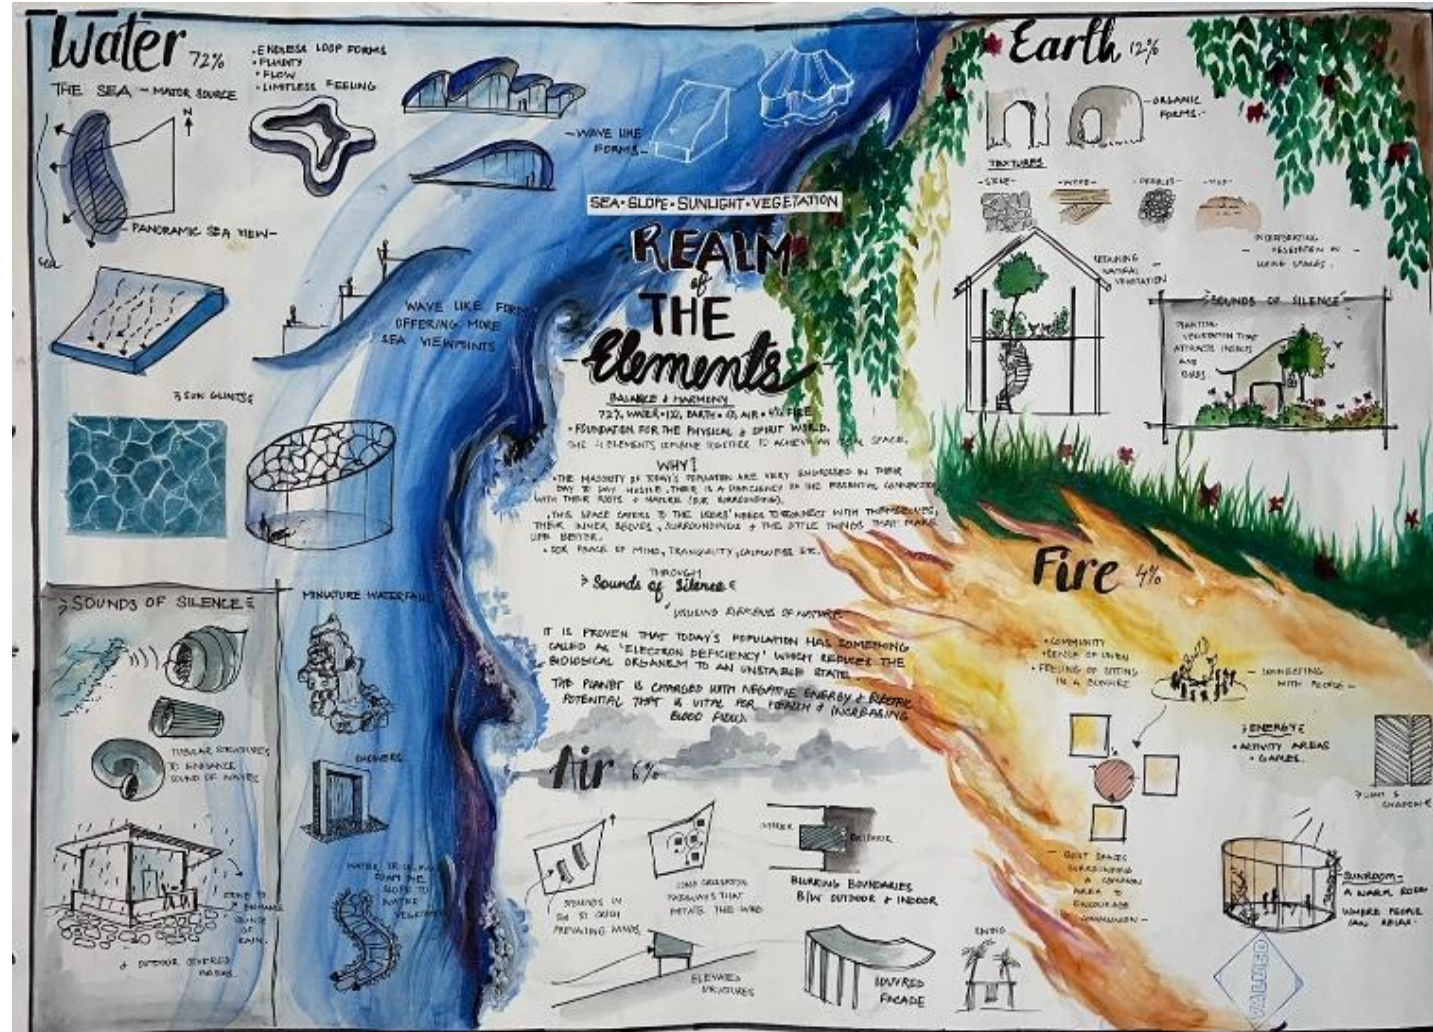 Water 72%
THE SEA - MAJOR SOURCE
• ENDLESS LOOP FORMS
• FLUIDITY
• FLOW
• LIMITLESS FEELING
N
SEA
- PANORAMIC SEA VIEW -
- WAVE LIKE
FORMS -
WAVE LIKE FORM
OFFERING MORE
SEA VIEWPOINTS
SUN GLINTS
SOUNDS OF SILENCE
TUBULAR STRUCTURES
TO ENHANCE
SOUND OF WAVES
OF
RAIN.
& OUTDOOR COVERED
AREAS.
MINIATURE WATERFALLS
SHOWERS
WATER
FROM THE
SLOPE TO
SEA • SLOPE • SUNLIGHT • VEGETATION
REALM
of
THE
Elements
BALANCE & HARMONY
72% WATER • 12% EARTH • 6% AIR • 4% FIRE
• FOUNDATION FOR THE PHYSICAL & SPIRIT WORLD.
THE 4 ELEMENTS COMBINE TOGETHER TO ACHIEVE AN SPACE.
WHY?
• THE MAJORITY OF TODAY'S POPULATION ARE VERY ENGROSSED IN THEIR
DAY TO DAY HUSTLE. THERE IS A DEFICIENCY OF THE ESSENTIAL CONNECTION
WITH THEIR ROOTS & NATURE (OUR SURROUNDING).
• THIS SPACE CATERS TO THE USERS' NEEDS TO CONNECT WITH THEMSELVES,
THEIR INNER BEINGS, SURROUNDINGS & THE LITTLE THINGS THAT MAKE
LIFE BETTER.
• FOR PEACE OF MIND, TRANQUILITY, CALMNESS ETC.
THROUGH
Sounds of Silence
UTILISING ELEMENTS OF NATURE
IT IS PROVEN THAT TODAY'S POPULATION HAS SOMETHING
CALLED AS 'ELECTRON DEFICIENCY' WHICH REDUCES THE
BIOLOGICAL ORGANISM TO AN UNSTABLE STATE.
THE PLANET IS CHARGED WITH NEGATIVE ENERGY & ELECTRIC
POTENTIAL THAT IS VITAL FOR HEALTH & INCREASING
BLOOD FLOW.
Air 6%
PREVAILING WINDS
LONG CIRCULATION
PATHWAYS THAT
THE WIND
INDOOR
OUTDOOR
BLURRING BOUNDARIES
B/W OUTDOOR & INDOOR
ELEVATED
STRUCTURES
LOUVRED
FACADE
SWING
Earth 12%
- ORGANIC
FORMS -
TEXTURES
- STONE -
- WOOD -
- PEBBLES -
- MUD -
RETAINING
NATURAL
VEGETATION
- INCORPORATING
VEGETATION IN
LIVING SPACES.
SOUNDS OF SILENCE
PLANTING
VEGETATION THAT
ATTRACTS INSECTS
AND
BIRDS
Fire 4%
• COMMUNITY
• SENSE OF UNION
• FEELING OF SITTING
IN A BONFIRE
- CONNECTING
WITH PEOPLE -
ENERGY
• ACTIVITY AREAS
• GAMES.
LIGHT &
SHADOW
- BUILT SPACES
SURROUNDING
A COMMON
AREA TO
ENCOURAGE
COMMUNION -
SUNROOM -
A WARM ROOM
WHERE PEOPLE
CAN RELAX.
VALUED